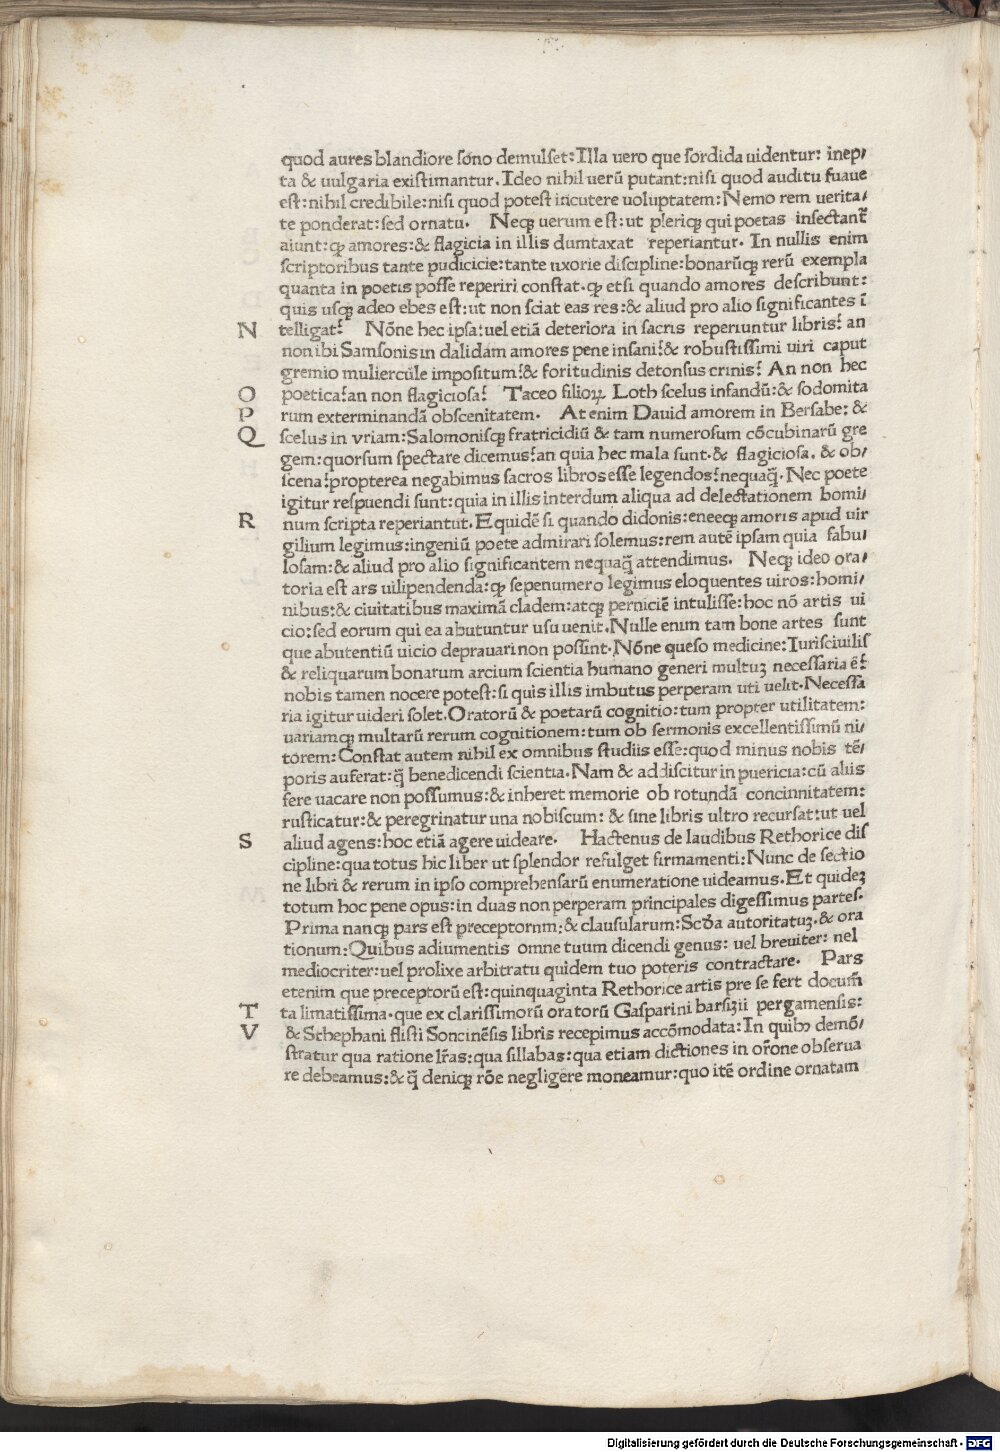 quod aures blandiore sono demulset: Illa uero que sordida uidentur: inep/
ta & uulgaria existimantur. Ideo nihil uerū putant: nisi quod auditu suaue
est: nihil credibile: nisi quod potest incutere uoluptatem: Nemo rem uerita/
te ponderat: sed ornatu. Neqꝫ uerum est: ut pleriqꝫ qui poetas insectant᷑
aiunt: qꝫ amores: & flagicia in illis dumtaxat reperiantur. In nullis enim
scriptoribus tante pudicicie: tante uxorie discipline: bonarūqꝫ rerū exempla
quanta in poetis posse reperiri constat. qꝫ etsi quando amores describunt:
quis usqꝫ adeo ebes est: ut non sciat eas res: & aliud pro alio significantes ī
N telligat? Nōne hec ipsa: uel etiā deteriora in sacris reperiuntur libris? an
non ibi Samsonis in dalidam amores pene insani? & robustissimi uiri caput
gremio muliercule impositum? & foritudinis detonsus crinis? An non hec
O poetica? an non flagiciosa? Taceo filioꝝ Loth scelus infandū: & sodomita
P rum exterminandā obscenitatem. At enim Dauid amorem in Bersabe: &
Q scelus in vriam: Salomonisqꝫ fratricidiū & tam numerosum cōcubinarū gre
gem: quorsum spectare dicemus? an quia hec mala sunt. & flagiciosa. & ob/
scena? propterea negabimus sacros libros esse legendos? nequaq̄. Nec poete
igitur respuendi sunt: quia in illis interdum aliqua ad delectationem homi/
R num scripta reperiantut. Equidē si quando didonis: eneeqꝫ amoris apud uir
gilium legimus: ingeniū poete admirari solemus: rem autē ipsam quia fabu/
losam: & aliud pro alio significantem nequaq̄ attendimus. Neqꝫ ideo ora/
toria est ars uilipendenda: qꝫ sepenumero legimus eloquentes uiros: homi/
nibus: & ciuitatibus maximā cladem: atqꝫ perniciē intulisse: hoc nō artis ui
cio: sed eorum qui ea abutuntur usu uenit. Nulle enim tam bone artes sunt
que abutentiū uicio deprauari non possint. Nōne queso medicine: Iuris ciuilis
& reliquarum bonarum arcium scientia humano generi multuꝫ necessaria ē?
nobis tamen nocere potest: si quis illis imbutus perperam uti uelit. Necessa
ria igitur uideri solet. Oratorū & poetarū cognitio: tum propter utilitatem:
uariamqꝫ multarū rerum cognitionem: tum ob sermonis excellentissimū ni/
torem: Constat autem nihil ex omnibus studiis esse: quod minus nobis tē/
poris auferat: q̄ benedicendi scientia. Nam & addiscitur in puericia: cū aliis
fere uacare non possumus: & inheret memorie ob rotundā concinnitatem:
rusticatur: & peregrinatur una nobiscum: & sine libris ultro recursat: ut uel
S aliud agens: hoc etiā agere uideare. Hactenus de laudibus Rethorice dis
cipline: qua totus hic liber ut splendor refulget firmamenti: Nunc de sectio
ne libri & rerum in ipso comprehensarū enumeratione uideamus. Et quideꝫ
totum hoc pene opus: in duas non perperam principales digessimus partes.
Prima nanqꝫ pars est preceptornm: & clausularum: Scd̄a autoritatuꝫ. & ora
tionum: Quibus adiumentis omne tuum dicendi genus: uel breuiter: nel
mediocriter: uel prolixe arbitratu quidem tuo poteris contractare. Pars
etenim que preceptorū est: quinquaginta Rethorice artis pre se fert docum̄
T ta limatissima. que ex clarissimorū oratorū Gasparini barsizii pergamensis:
V & Sthephani flisti Soncinēsis libris recepimus accōmodata: In quibꝫ demō/
stratur qua ratione lr̄as: qua sillabas: qua etiam dictiones in or̄one obserua
re debeamus: & q̄ deniqꝫ rōe negligere moneamur: quo itē ordine ornatam
Digitalisierung gefördert durch die Deutsche Forschungsgemeinschaft - DFG